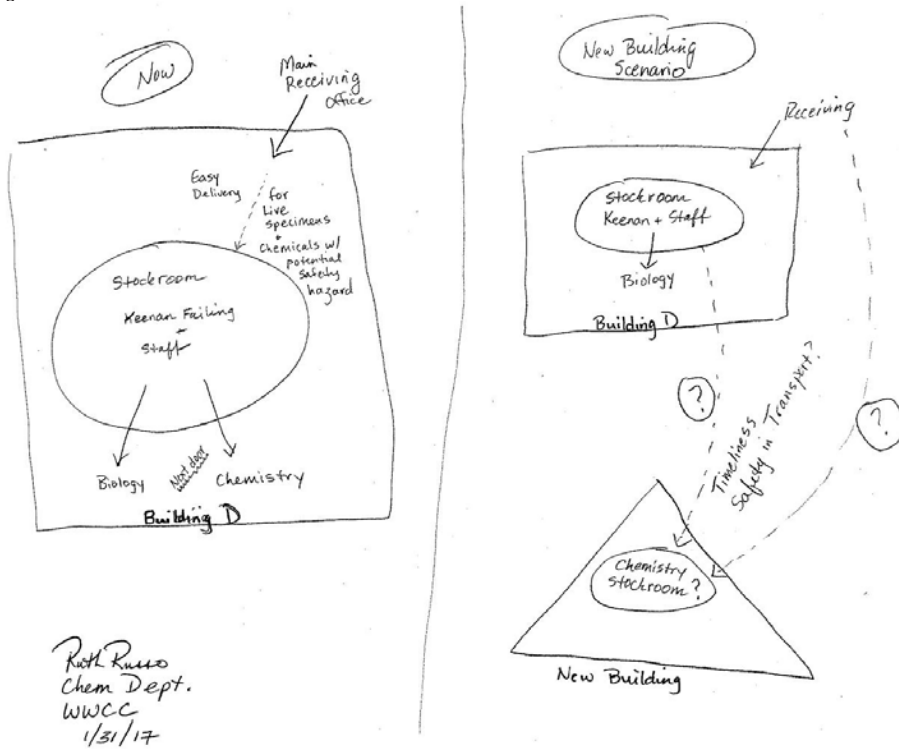 Now
Main
Receiving
Office
Easy
Delivery
for
Live
specimens
+
Chemicals w/
potential
safety
hazard
Stockroom
Keenan Failing
+
Staff
Biology
Next door
Chemistry
Building D
Ruth Russo
Chem Dept.
WWCC
1/31/17
New Building
Scenario
Receiving
Stockroom
Keenan + Staff
Biology
Building D
?
Timeliness
Safety in Transport?
?
Chemistry
Stockroom?
New Building